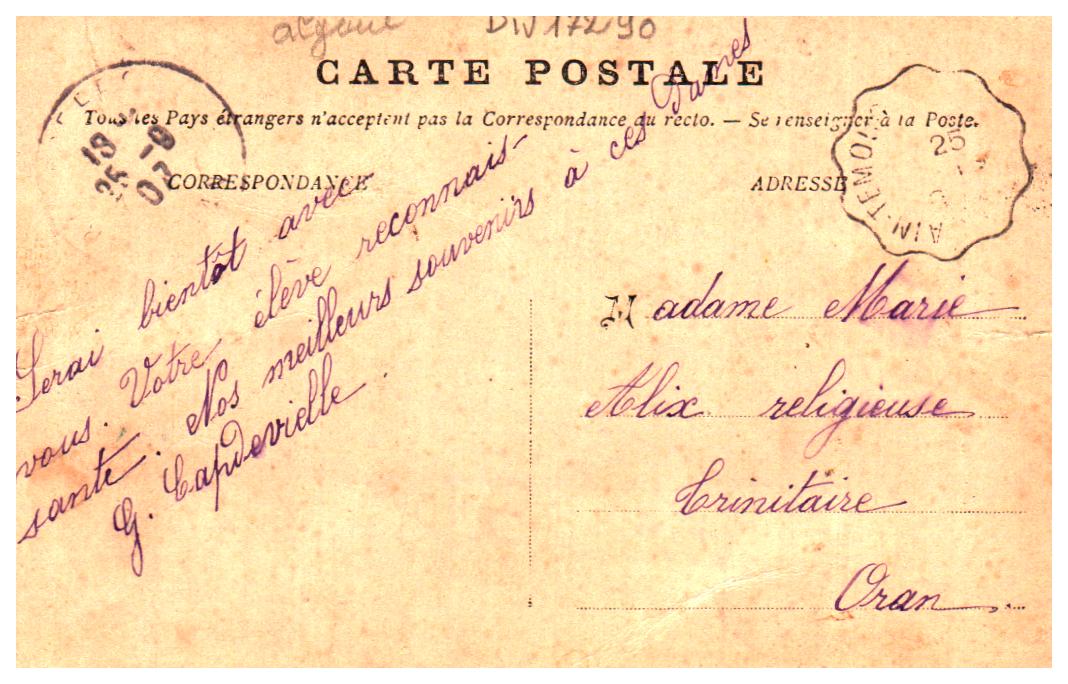 algérie DIV 172/90
CARTE POSTALE
Tous les Pays étrangers n'acceptent pas la Correspondance au recto. — Se renseigner à la Poste.
CORRESPONDANCE
ADRESSE
18
25 - 9
07
AIN-TEMOU
25
Serai bientôt avec
vous. Votre élève reconnais-
sante. Nos meilleurs souvenirs à ces Dames
G. Capdevielle.
Madame Marie
Alix religieuse
Trinitaire
Oran